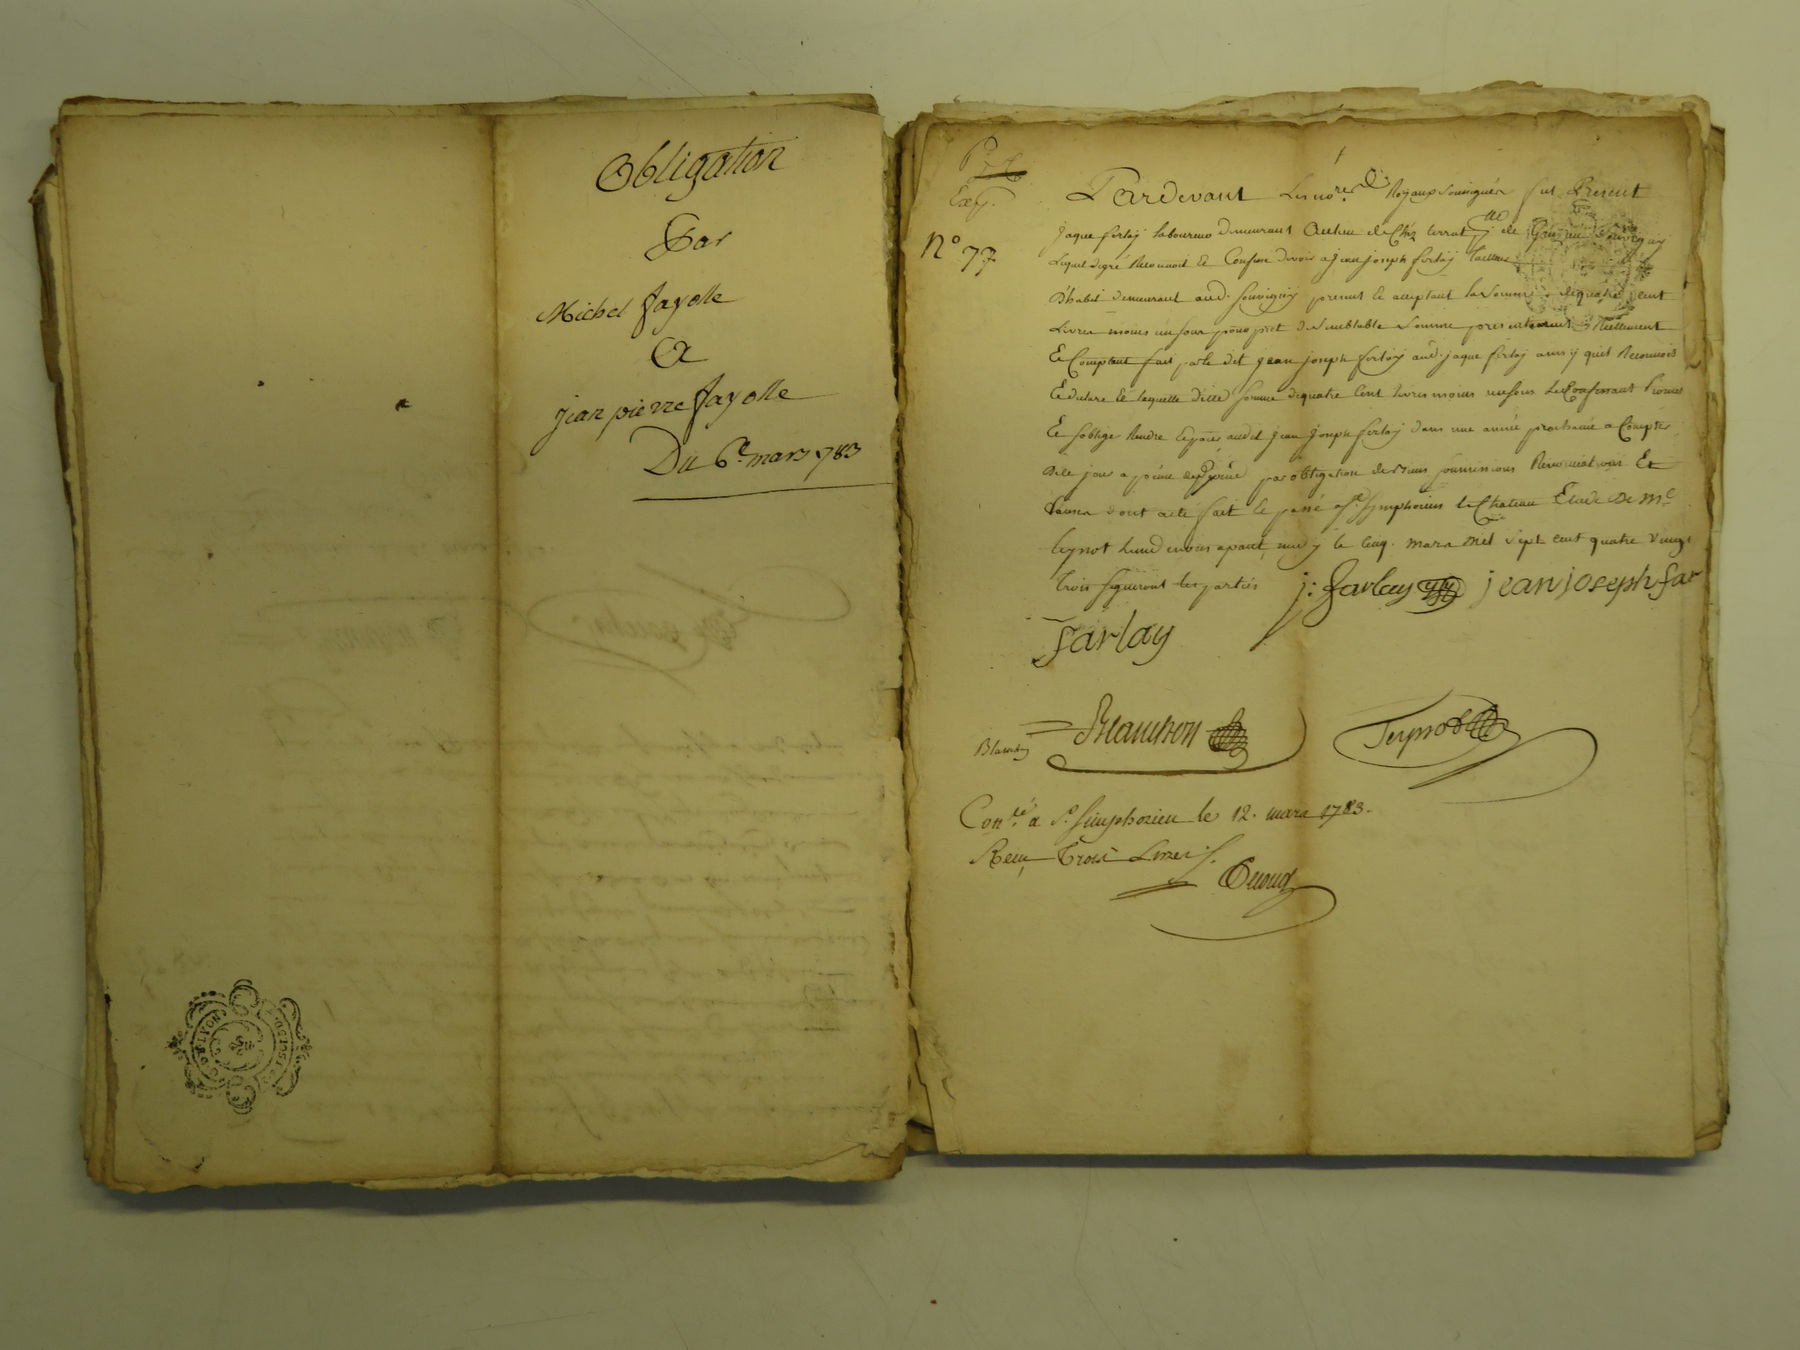 Obligation
Par
Michel fayolle
A
jean pierre fayolle
Du 6e mars 1783
DE LYON
Exp.
N° 77
Pardevant Les no.re Royaux soussignés fut Present
jaque ferlay laboureur demeurant Au lieu de Chez
Lequel degré Reconnoit Et Confesse devoir a jean joseph ferlay Tailleur
D'habit demeurant aud. present Et acceptant la somme de quatre cent
Livres moins un sour pour pret de semblable somme presentement Reellement
Et Comptant fait par le dit jean joseph ferlay aud. jaque ferlay ainsy quil Reconnoit
laquelle ditte somme de quatre Cent livres moins un sous Le Confessant Promet
Et soblige Rendre Et payer audit jean joseph ferlay dans une année prochaine a Compter
De ce jour a peine par obligation de Biens soumissions Renonciations Et
Clauses dont acte fait Et passé a St. simphorien le Chateau Etude De Me
Teynot Lun d'enous apant midy le cinq. mars Mil sept cent quatre vingt
Trois signeront les parties j: farlay jean joseph far
farlay
Blanchon
Blanchon
Teynot
Con.lé a St. simphorien le 12. mars 1783.
Reçu Trois Livres